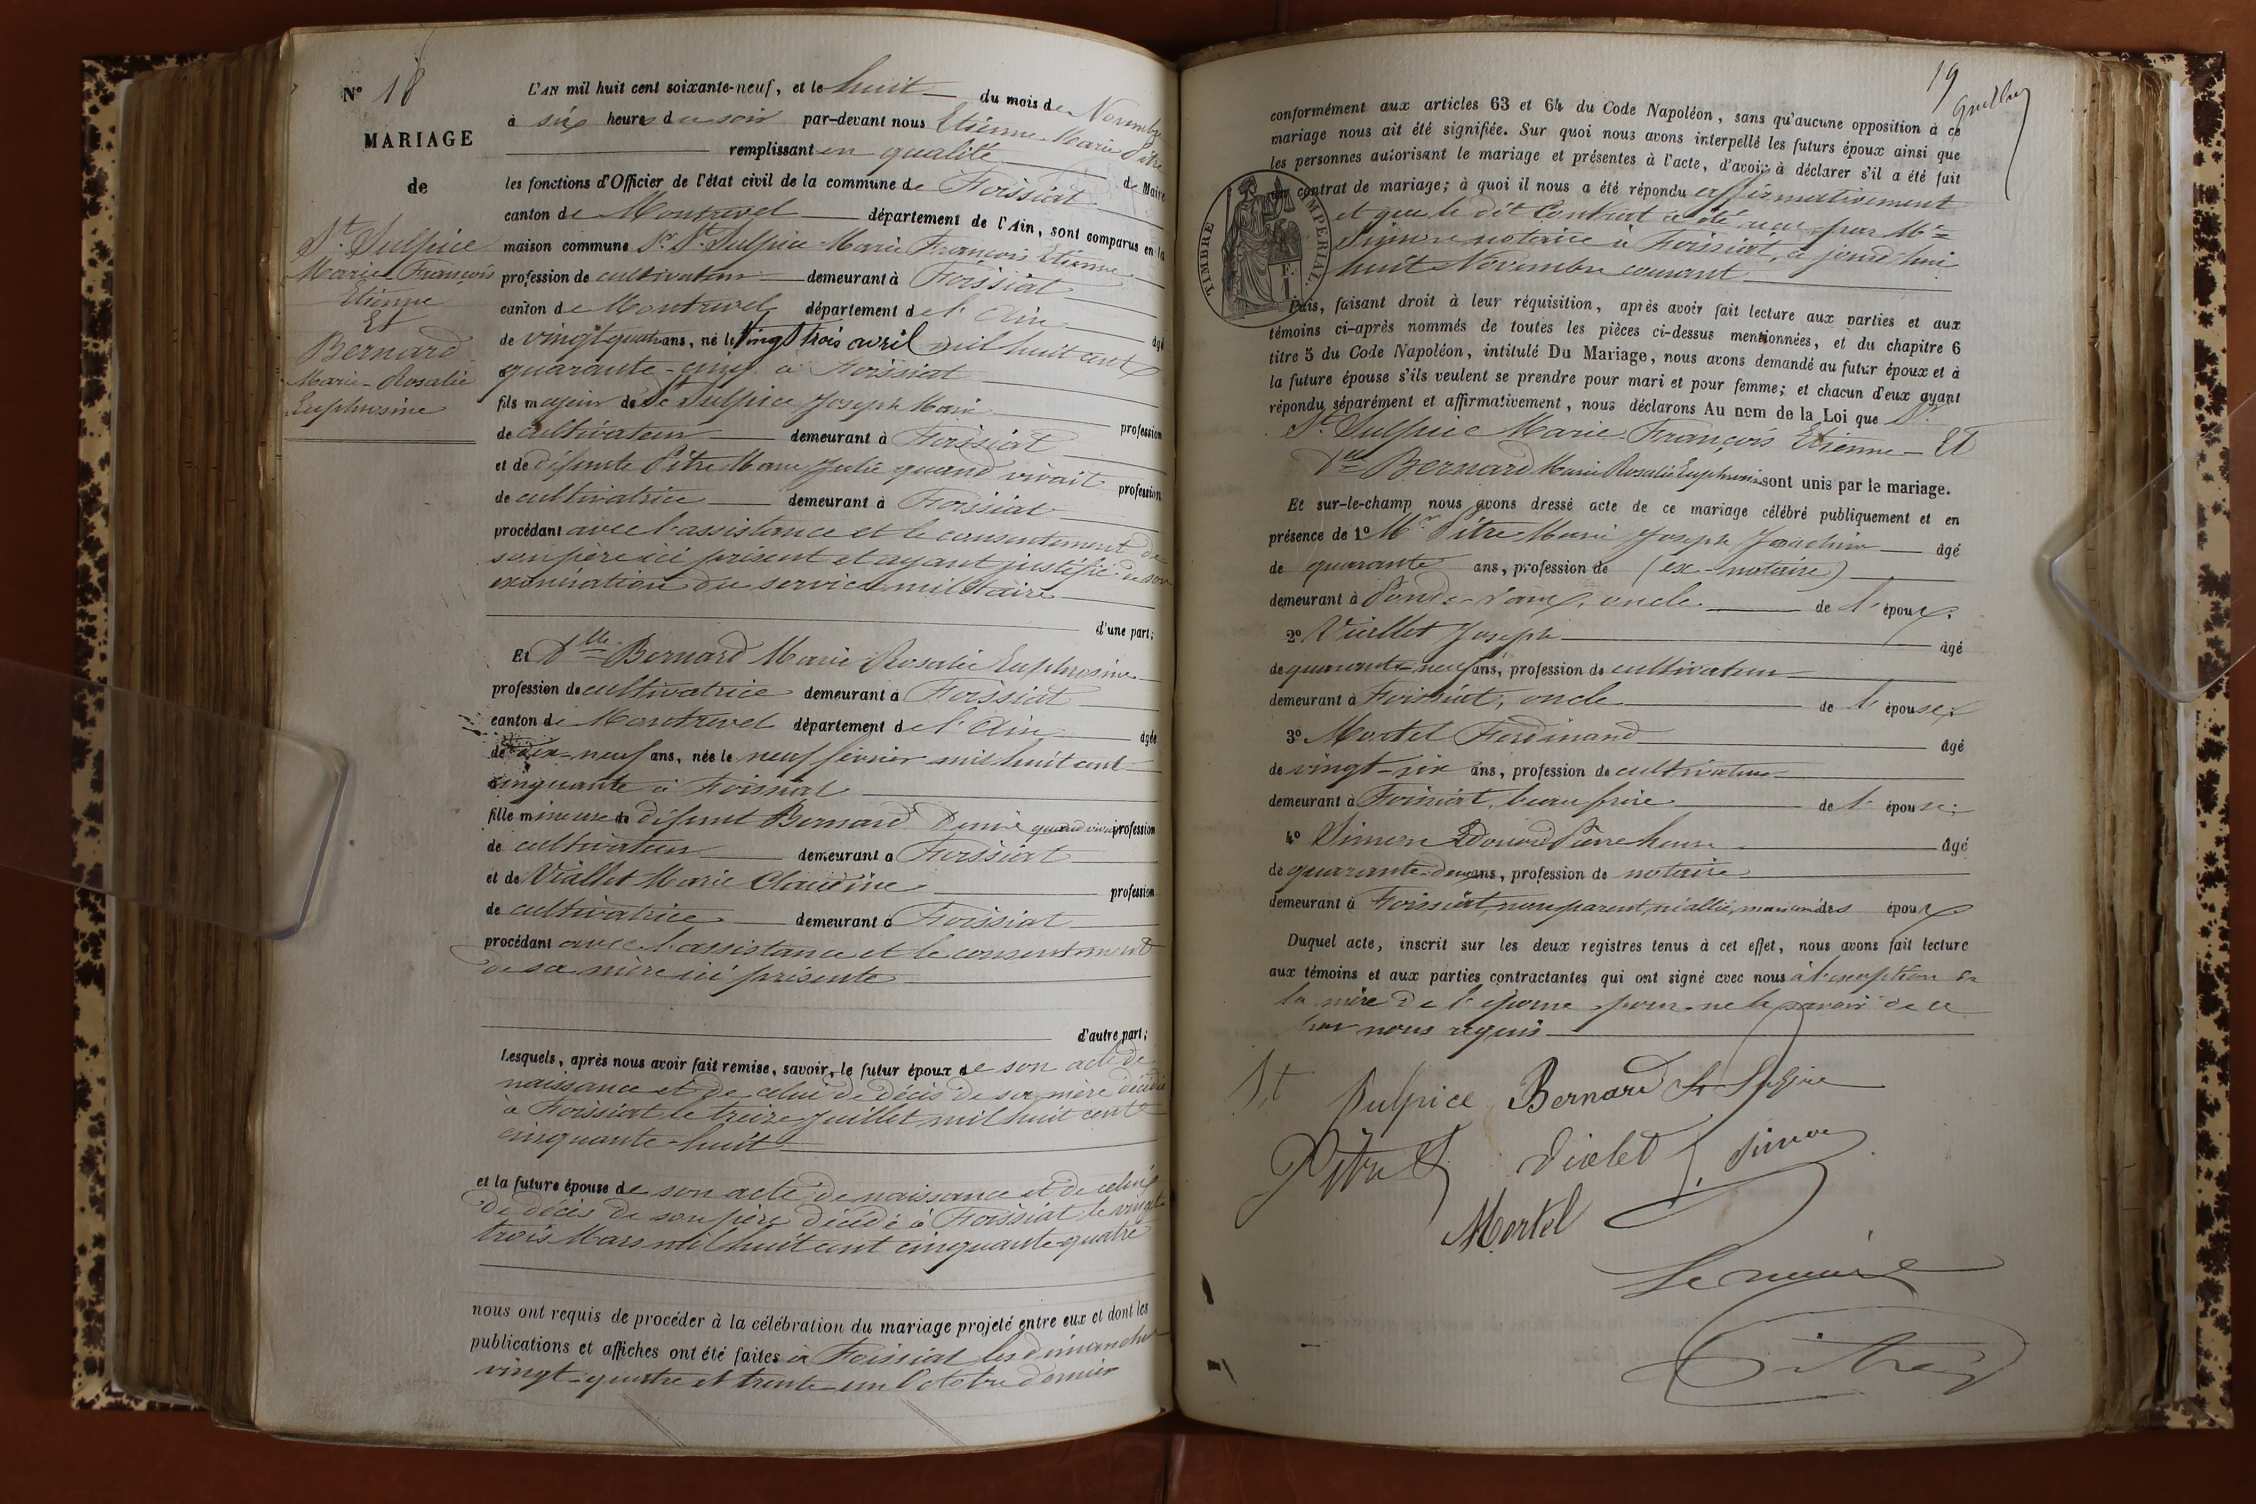 N° 18
MARIAGE
de
St Sulpice
Marie François
Etienne
Et
Bernard
Marie-Rosalie
Euphrosine
L'AN mil huit cent soixante-neuf, et le huit du mois de Novembre
à six heures du soir par-devant nous Etienne Marie Pitre
remplissant en qualité de Maire
les fonctions d'Officier de l'état civil de la commune de Foissiat
canton de Montrevel département de l'Ain, sont comparus en la
maison commune Sr St Sulpice Marie François Etienne
profession de cultivateur demeurant à Foissiat
canton de Montrevel département de l'Ain âgé
de vingt quatre ans, né le vingt trois avril mil huit cent
quarante-cinq à Foissiat
fils majeur de St Sulpice Joseph Marie profession
de cultivateur demeurant à Foissiat
et de défunte Pitre Marie Julie quand vivait profession
de cultivatrice demeurant à Foissiat
procédant avec l'assistance et le consentement de
son père ici présent et ayant justifié de son
exonération du service militaire
d'une part;
Et Dlle Bernard Marie Rosalie Euphrosine
profession de cultivatrice demeurant à Foissiat
canton de Montrevel département de l'Ain âgée
de dix-neuf ans, née le neuf février mil huit cent
cinquante à Foissiat
fille mineure de défunt Bernard Denis quand vivait profession
de cultivateur demeurant à Foissiat
et de Viallet Marie Claudine profession
de cultivatrice demeurant à Foissiat
procédant avec l'assistance et le consentement
de sa mère ici présente
d'autre part;
Lesquels, après nous avoir fait remise, savoir, le futur époux de son acte de
naissance et de celui de décès de sa mère décédée
à Foissiat le treize Juillet mil huit cent
cinquante-huit
et la future épouse de son acte de naissance et de celui
de décès de son père décédé à Foissiat le vingt
trois Mars mil huit cent cinquante-quatre
nous ont requis de procéder à la célébration du mariage projeté entre eux et dont les
publications et affiches ont été faites à Foissiat les dimanches
vingt-quatre et trente-un Octobre dernier
19
conformément aux articles 63 et 64 du Code Napoléon, sans qu'aucune opposition à ce
mariage nous ait été signifiée. Sur quoi nous avons interpellé les futurs époux ainsi que
les personnes autorisant le mariage et présentes à l'acte, d'avoir à déclarer s'il a été fait
contrat de mariage; à quoi il nous a été répondu affirmativement
et que le dit Contrat a été reçu par Me
Simon notaire à Foissiat, ce jourd'hui
huit Novembre courant
TIMBRE IMPERIAL.
Puis, faisant droit à leur réquisition, après avoir fait lecture aux parties et aux
témoins ci-après nommés de toutes les pièces ci-dessus mentionnées, et du chapitre 6
titre 5 du Code Napoléon, intitulé Du Mariage, nous avons demandé au futur époux et à
la future épouse s'ils veulent se prendre pour mari et pour femme; et chacun d'eux ayant
répondu séparément et affirmativement, nous déclarons Au nom de la Loi que Sr
St Sulpice Marie François Etienne Et
Dlle Bernard Marie Rosalie Euphrosine sont unis par le mariage.
Et sur-le-champ nous avons dressé acte de ce mariage célébré publiquement et en
présence de 1° Mr Pitre Marie Joseph Joachim âgé
de quarante ans, profession de (ex-notaire)
demeurant à Pont-de-Vaux, oncle de l'époux;
2° Viallet Joseph âgé
de quarante-neuf ans, profession de cultivateur
demeurant à Foissiat, oncle de l'épouse;
3° Mortel Ferdinand âgé
de vingt-six ans, profession de cultivateur
demeurant à Foissiat, beau frère de l'épouse;
4° Simon Edouard Pierre âgé
de quarante-deux ans, profession de notaire
demeurant à Foissiat, non parent, ni allié, des époux
Duquel acte, inscrit sur les deux registres tenus à cet effet, nous avons fait lecture
aux témoins et aux parties contractantes qui ont signé avec nous à l'exception de
la mère de l'épouse pour ne le savoir de ce
par nous requis
St Sulpice Bernard St Sulpice
Pitre Violet J Simon
Mortel
Le maire
Pitre